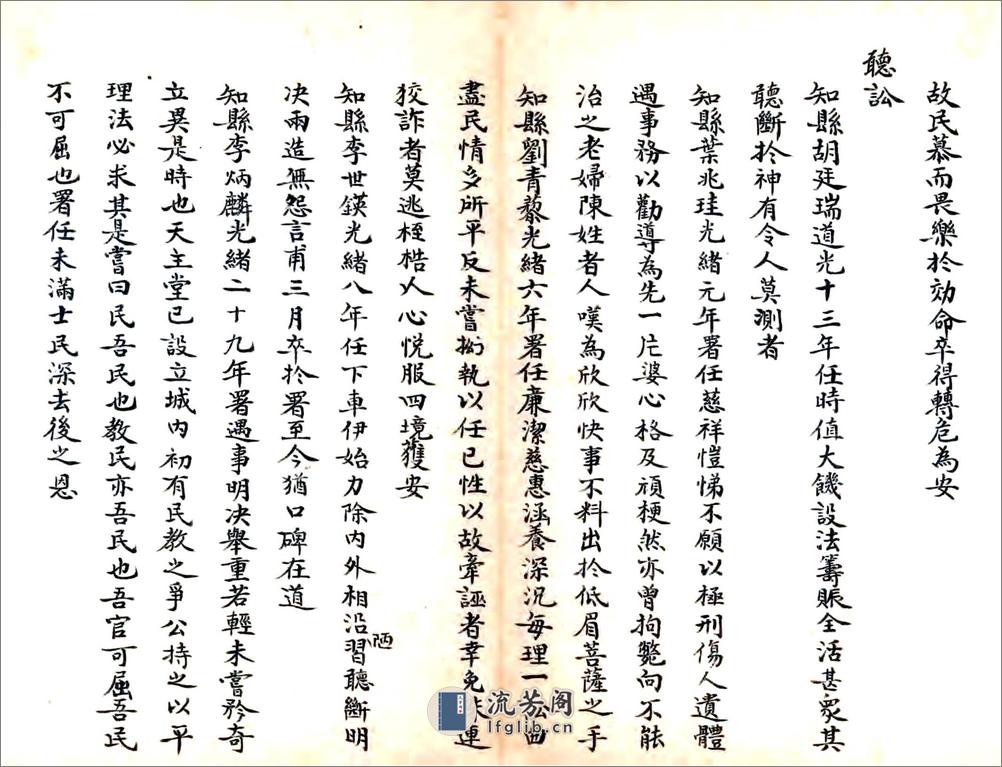 故民慕而畏樂於効命卒得轉危為安
聽訟
知縣胡廷瑞道光十三年任時值大饑設法籌賑全活甚眾其
聽斷於神有令人莫測者
知縣葉兆珪光緒元年署任慈祥愷悌不願以極刑傷人遺體
遇事務以勸導為先一片婆心格及頑梗然亦曾拘斃向不能
治之老婦陳姓者人嘆為欣欣快事不料出於低眉菩薩之手
知縣劉青藜光緒六年署任廉潔慈惠涵養深沉每理一訟曲
盡民情多所平反未嘗拗執以任已性以故牽誣者幸免株連
狡詐者莫逃桎梏人心悅服四境獲安
知縣李世鍈光緒八年任下車伊始力除內外相沿習陋聽斷明
决兩造無怨言甫三月卒於署至今猶口碑在道
知縣李炳麟光緒二十九年署遇事明决舉重若輕未嘗矜奇
立異是時也天主堂已設立城內初有民教之爭公持之以平
理法必求其是嘗曰民吾民也教民亦吾民也吾官可屈吾民
不可屈也署任未滿士民深去後之恩
流芳阁
lfglib.cn